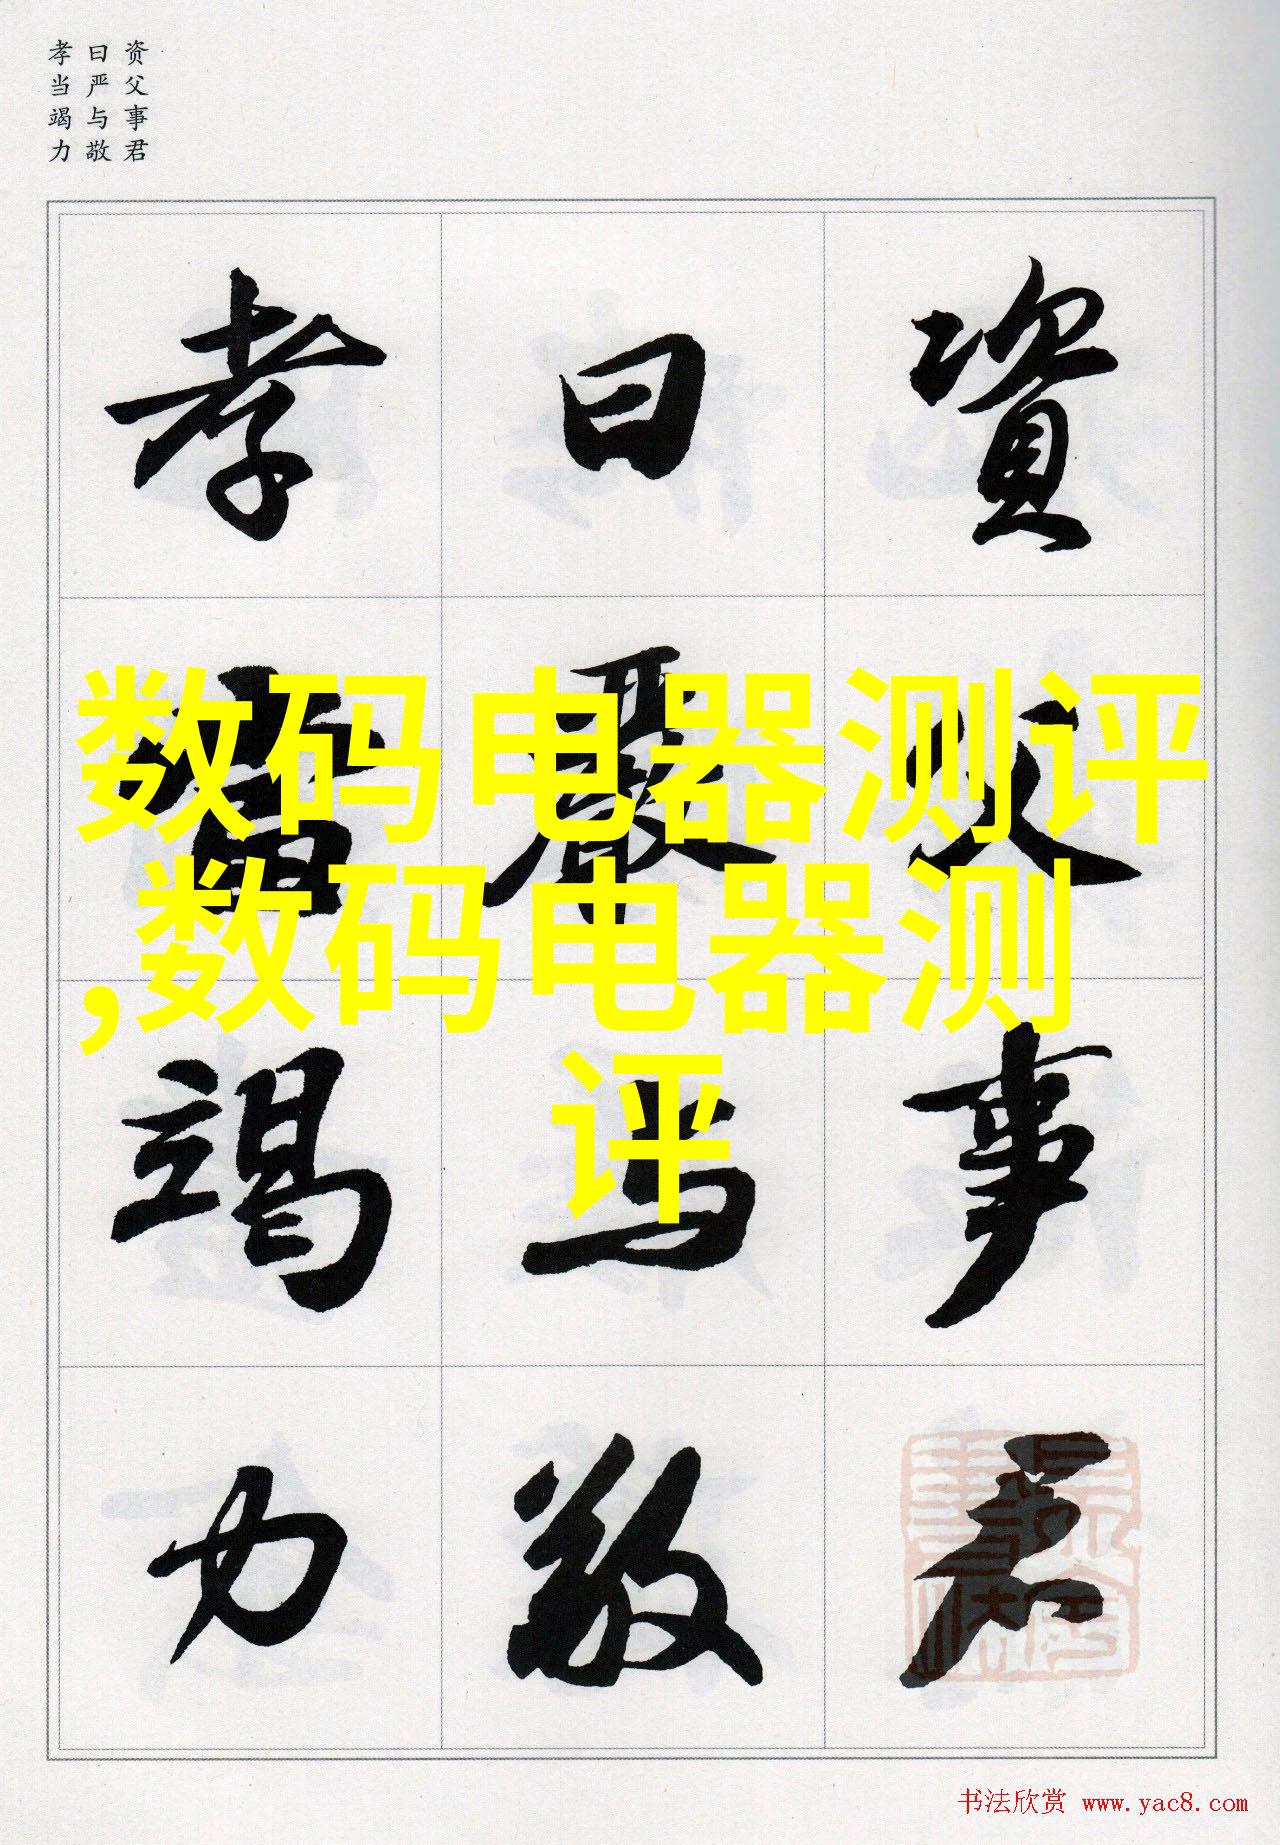 资父事君
曰严与敬
孝当竭力
資父事君
曰嚴与敬
孝當竭力
数码电器测评
,数码电器测
评
书法欣赏 www.yac8.com